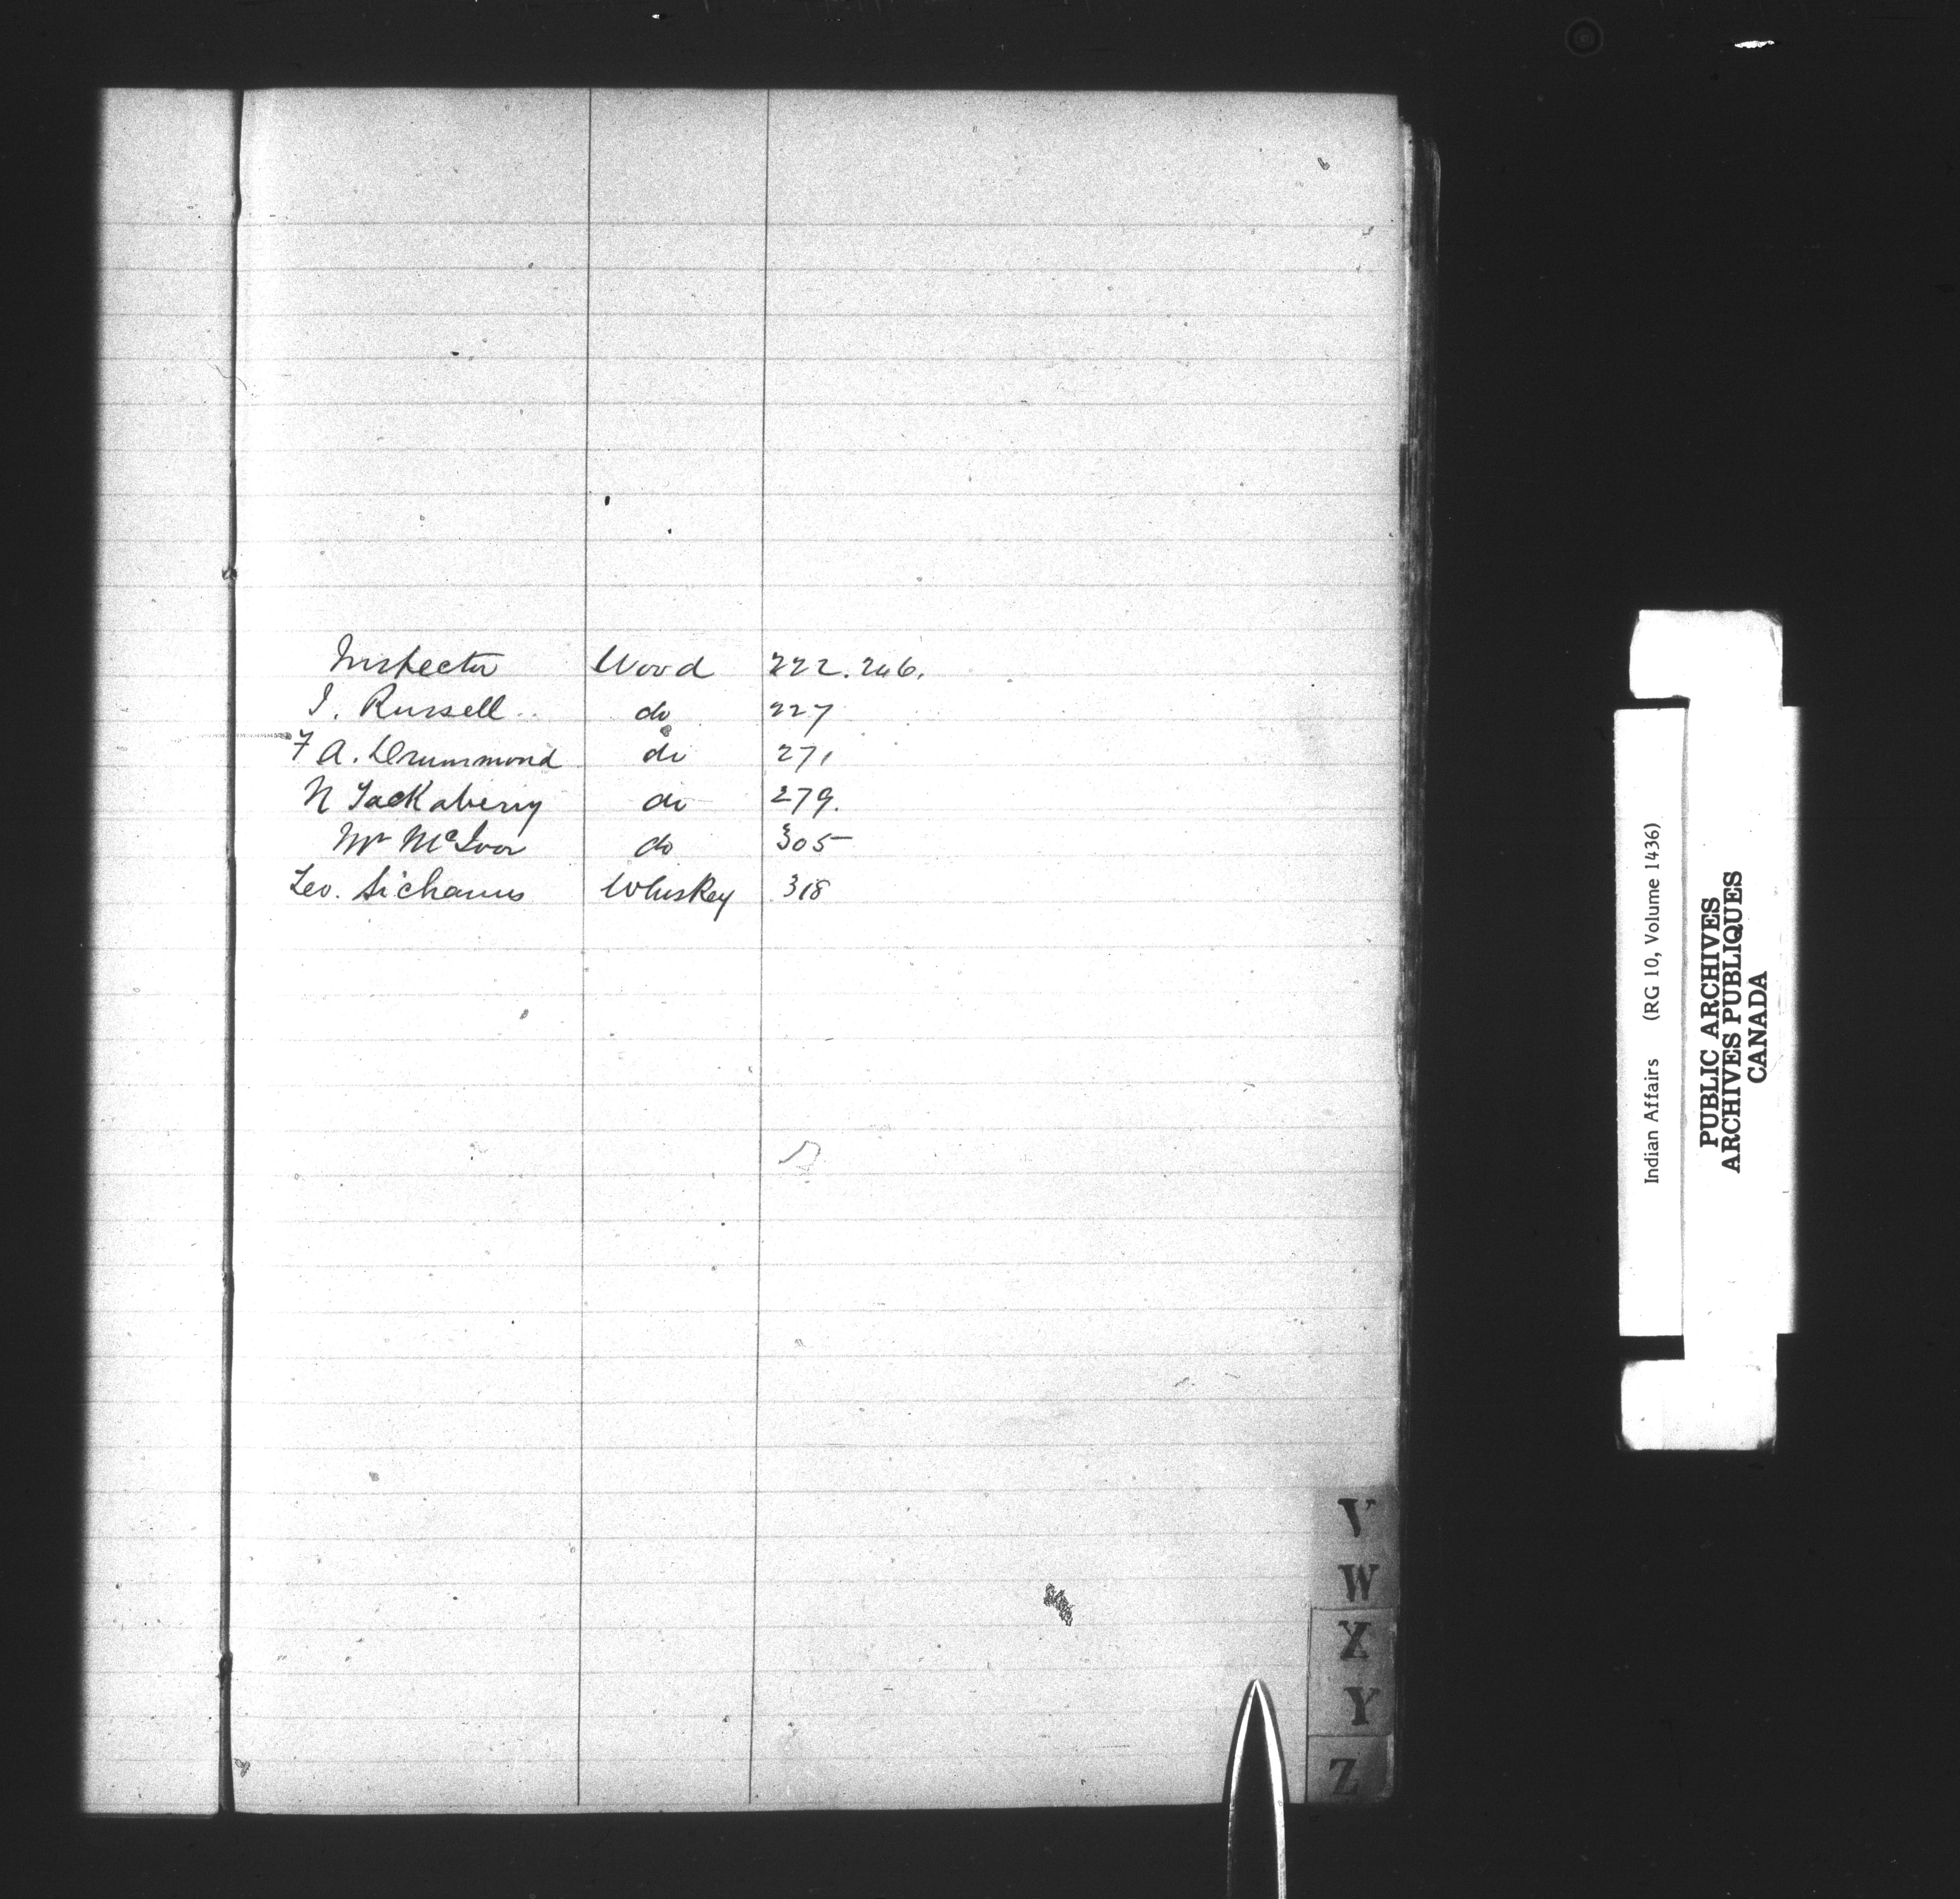 Inspector Wood 222. 246.
J. Russell do 227
F A. Drummond do 271
N Jackaberry do 279.
Mr McIvor do 305
Geo. Whiskey 318
V
W
X
Y
Z
Indian Affairs (RG 10, Volume 1436)
PUBLIC ARCHIVES
ARCHIVES PUBLIQUES
CANADA